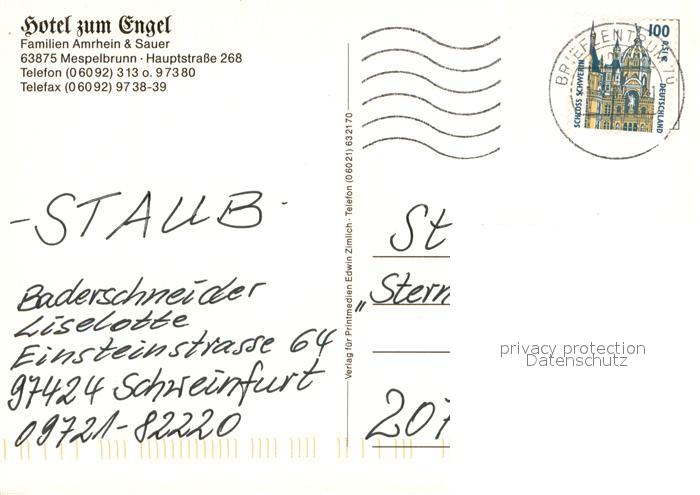 Hotel zum Engel
Familien Amrhein & Sauer
63875 Mespelbrunn · Hauptstraße 268
Telefon (0 60 92) 3 13 o. 9 73 80
Telefax (0 60 92) 97 38-39
-STAUB-
Baderschneider
Liselotte
Einsteinstrasse 64
97424 Schweinfurt
09721-82220
Verlag für Printmedien Edwin Zimlich · Telefon (0 60 21) 63 21 70
BRIEFZENTRUM 70
100
SCHLOSS SCHWERIN
DEUTSCHLAND
St
„Stern
207
privacy protection
Datenschutz